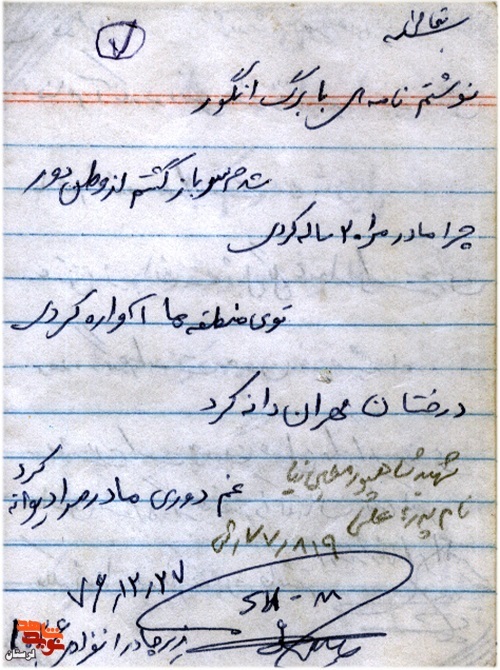 بسمه تعالی
۷
نوشتم نامه‌ای با برگ انگور
شدم سرباز گشتم از وطن دور
چرا مادر مرا ۲۰ ساله کردی
توی منطقه ها آواره کردی
درختان مهران دانه کرد
غم دوری مادر مرا دیوانه کرد
شهید شاهپور
نام پدر: علی
۷۶,۱۲,۲۷
لرستان